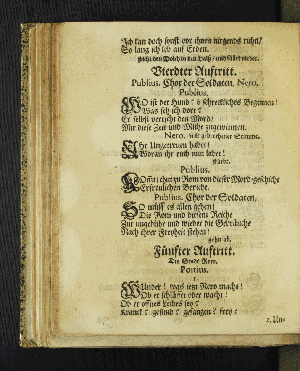 Ich kan doch sonst vor ihnen nirgends ruhn/
So lang ich leb auf Erden.
sticht den Dolch in den Halß/ und fället nieder.
Vierdter Aufftritt.
Publius. Chor der Soldaten. Nero.
Publius.
WO ist der Hund? ô schreckliches Beginnen!
Was seh ich dort?
Er selbst verricht den Mord/
Mir diese Zeit und Mühe zugewinnen.
Nero. mit gebrochener Stimme.
Ihr Ungetreuen habet!
Woran ihr euch nun labet!
stirbt.
Publius.
Kommt; thut zu Rom von dieser Mord-geschicht
Erfreulichen Bericht.
Publius. Chor der Soldaten,
SO muß es allen gehen!
Die Rom und diesem Reiche
Zur ungebühr und wieder die Gebräuche
Nach ihrer Freyheit stehen!
gehn ab.
Fünfter Aufftritt.
Die Stadt Rom.
Portius.
1.
WUnder! was jetzt Nero macht!
Ob er schläffet oder wacht!
Ob er offnes Leibes sey?
Kranck? gesund? gefangen? frey?
2. Un-